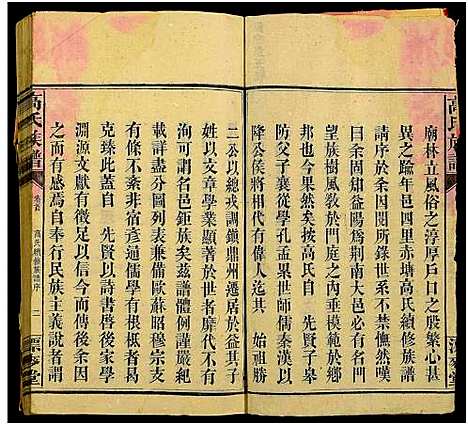 廟林立風俗之淳厚戶口之殷繁心甚
異之踰年邑四里赤塘高氏續修族譜
請序於余因閱所錄世系不禁憮然嘆
曰余固知益陽爲荆南大邑必有故家
望族樹風敬於門庭之內垂模範於鄉
邦也今果然矣按高氏自　先賢子羔
防父子襄由學孔孟杲世師胡安定
降公侯將相代有偉人迄其　始祖勝
二公以總戎調鎮鼎州遷居於益其子
姓以文章學業顯著於世者靡代不有
洵可謂名邑鉅族矣茲譜體例謹嚴紀
載詳盡分圖列表兼備歐蘇昭穆宗支
有條不紊非宿彥過儒學有根柢者曷
克臻此哉更以詩書啓後
淵源文獻有徵足以信今而傳後余因
之而有感焉自奉行民族主義說者謂
高氏族譜
卷首
高氏續修族譜序
二
高氏族譜